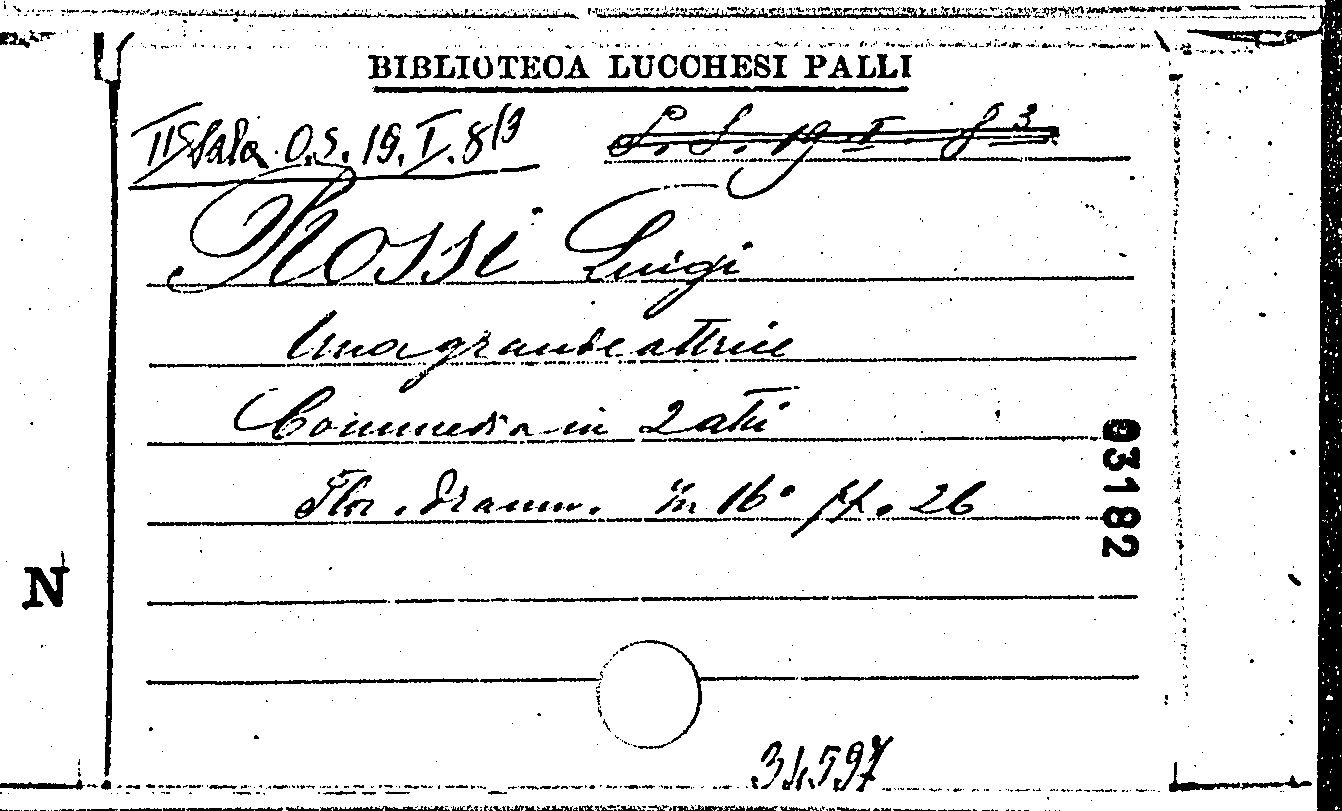 BIBLIOTECA LUCCHESI PALLI
II Sala O.S. 19. I. 8/3
S. S. 19 I. 8 3
Rossi Luigi
Una grande attrice
Commedia in 2 atti
Flor. dramm. in 16° pp. 26
03182
N
34597